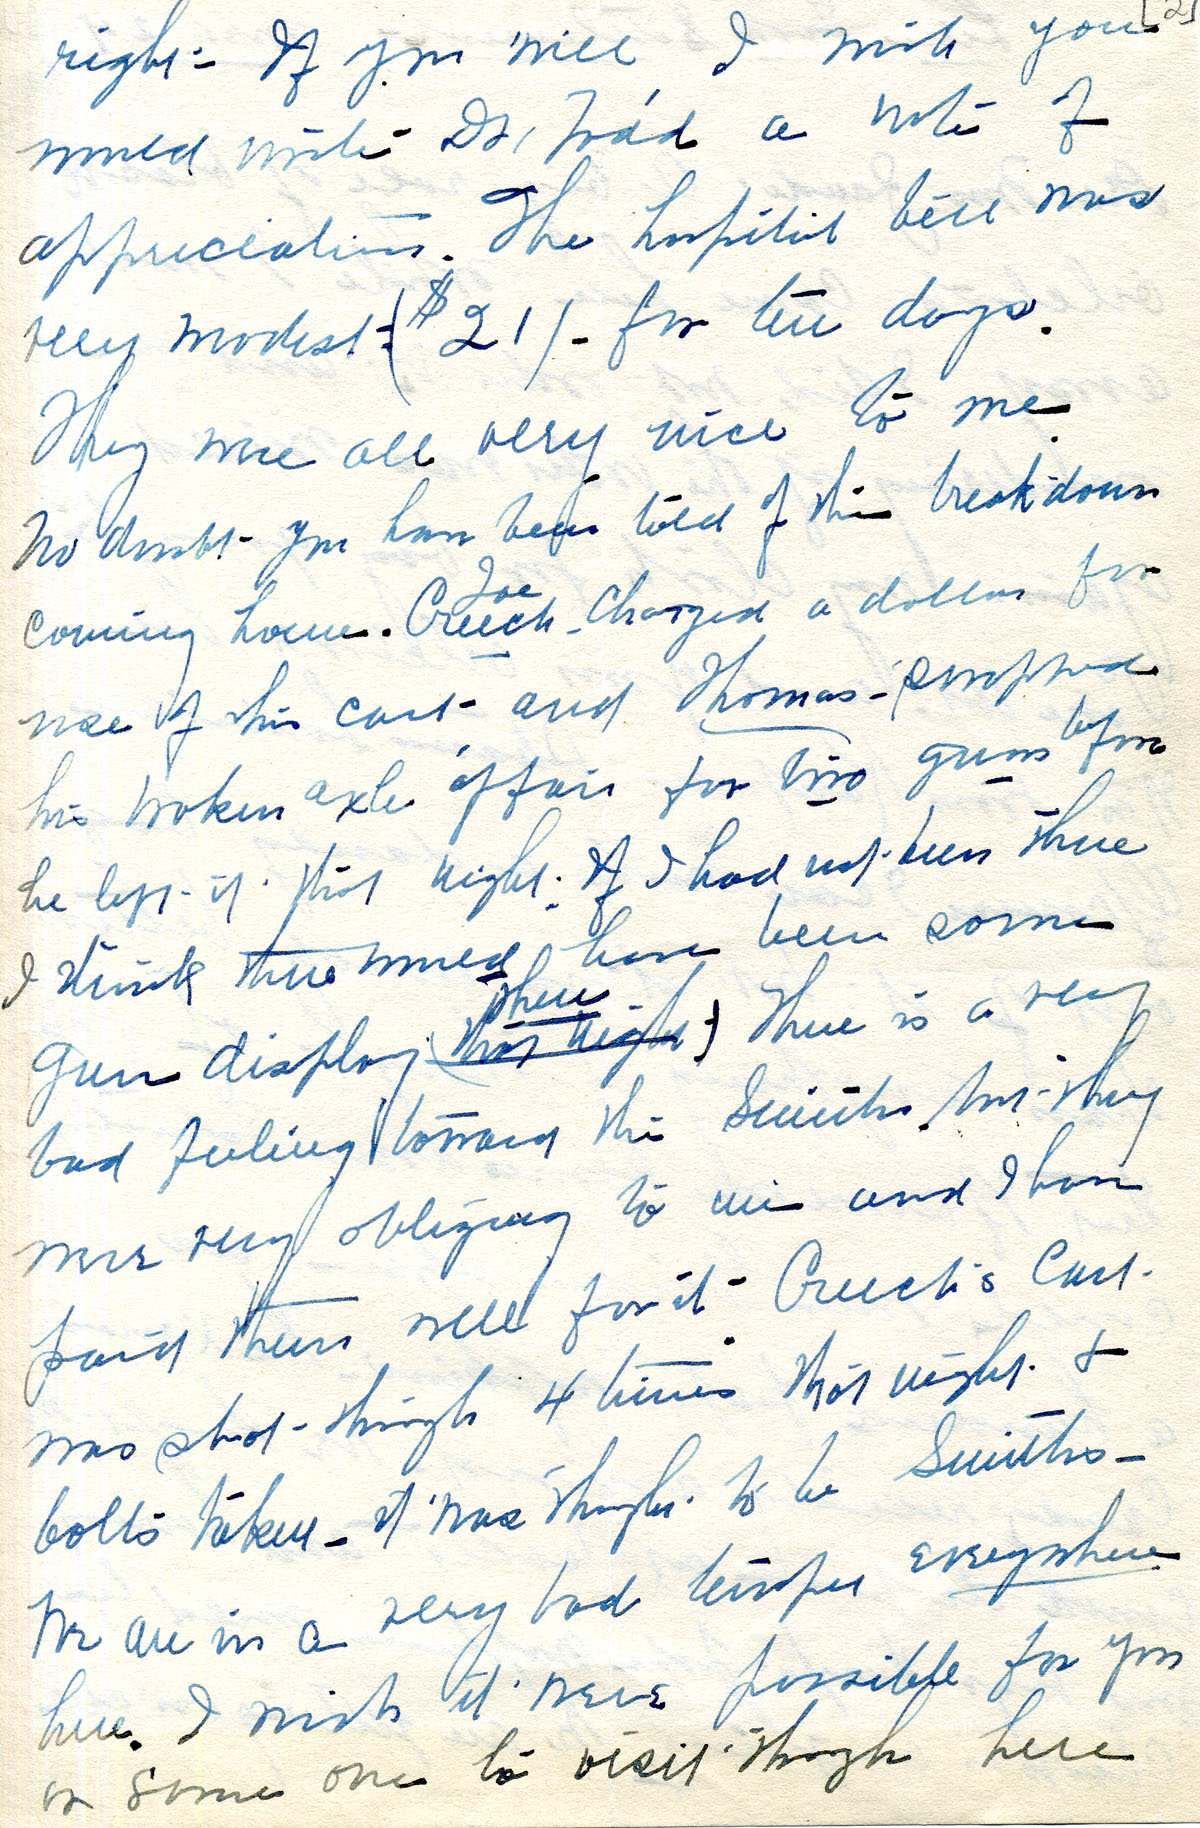 [2]
right - If you will I wish you
would write Dr. Todd a note of
appreciation. The hospital bill was
very modest - ($21) - for ten days.
They were all very nice to me.
No doubt - you have been told of the breakdown
coming home. Joe Creech - charged a dollar for
use of his cart - and Thomas - swapped
his broken axle affair for two guns before
he left - it that night. If I had not been there
I think there would have been some
gun display (that night) there There is a very
bad feeling toward the Smiths, but - they
were very obliging to me and I have
paid them well for it - Creech's Cart.
was shot - through 4 times that night &
bolts taken - it was thought to be Smiths -
We are in a very bad temper everywhere
here. I wish it were possible for you
or some one to visit through here